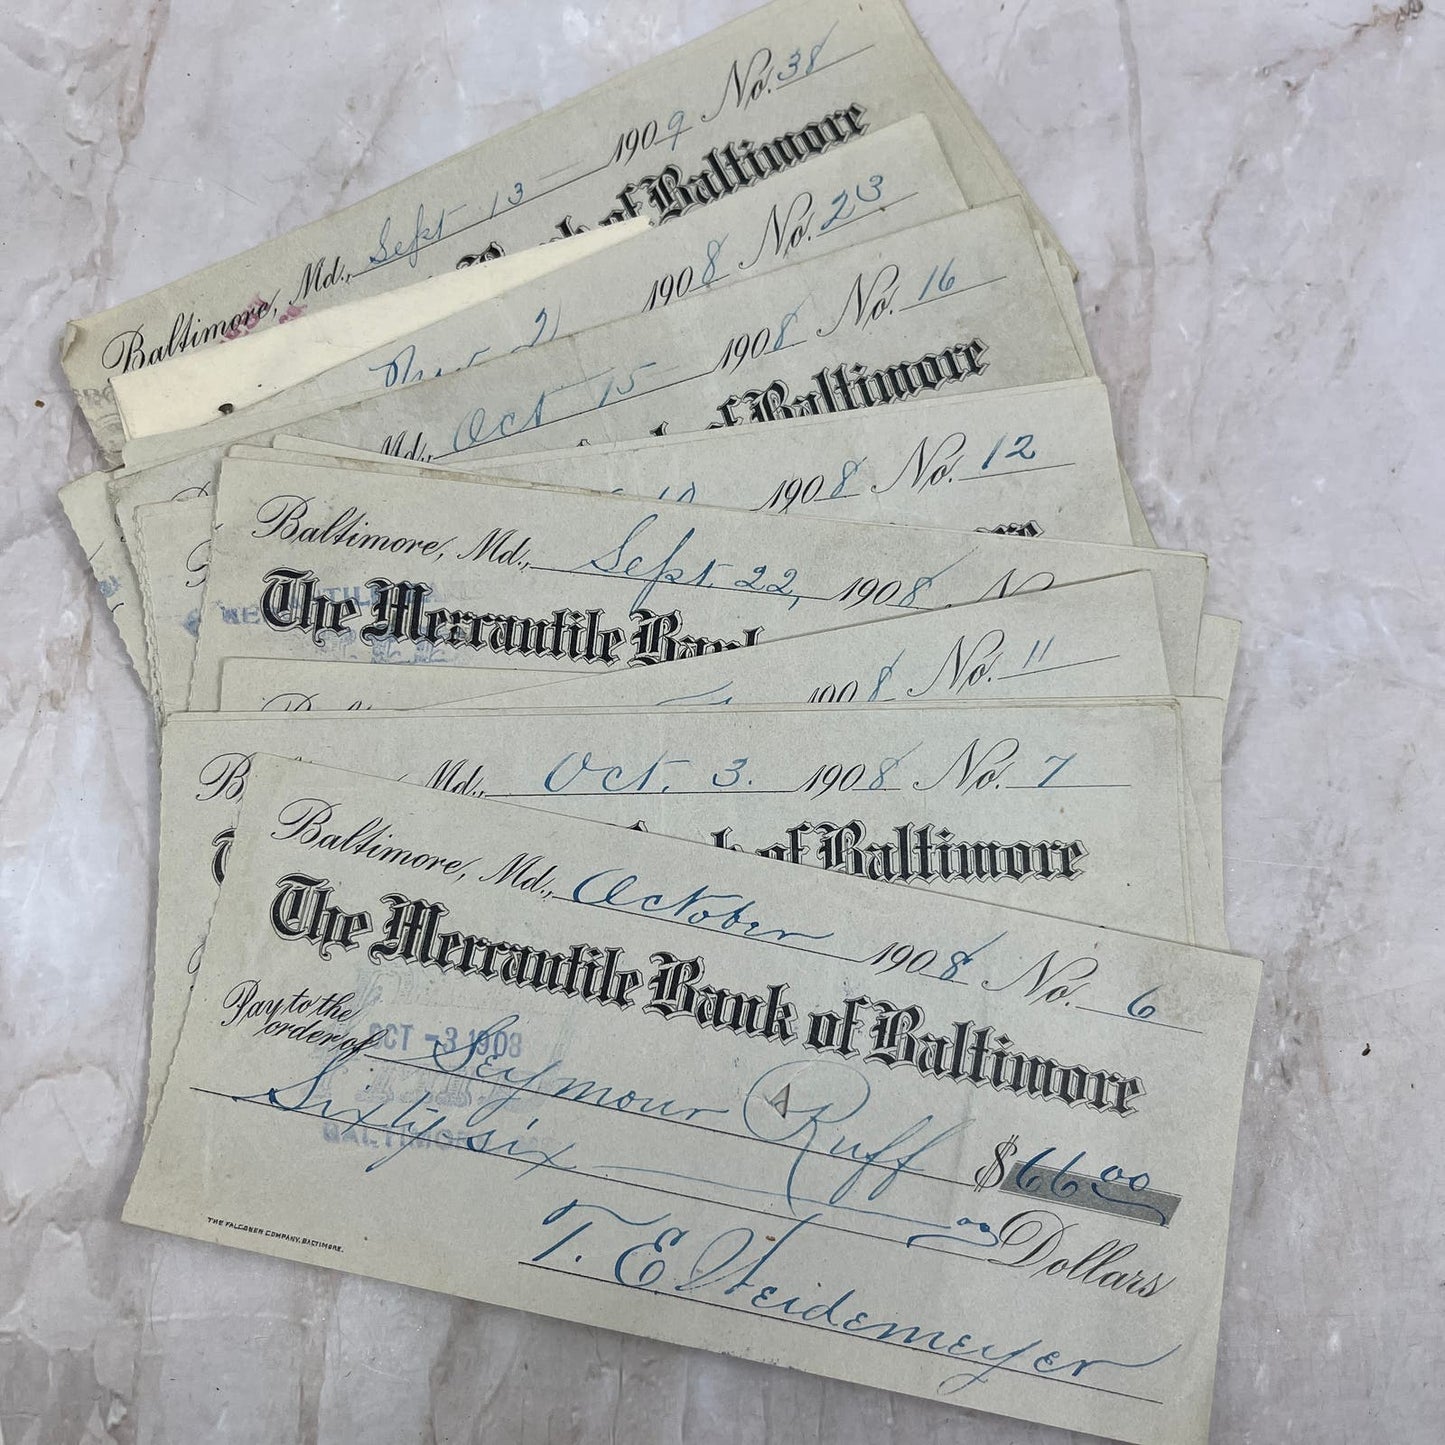 Baltimore, Md., Sept 13 1909 No. 38
Bank of Baltimore
2 1908 No. 23
Md., Oct 15 1908 No. 16
of Baltimore
10 1908 No. 12
Baltimore, Md., Sept. 22, 1908
The Mercantile Bank
8 No. 11
Md., Oct. 3. 1908 No. 7
Bank of Baltimore
Baltimore, Md., October 1908 No. 6
The Mercantile Bank of Baltimore
Pay to the
order of Seymour A Ruff $66.00
OCT -3 1908
Sixty six Dollars
BALTIMORE
T. E. Weidemeyer
THE FALCONER COMPANY, BALTIMORE.